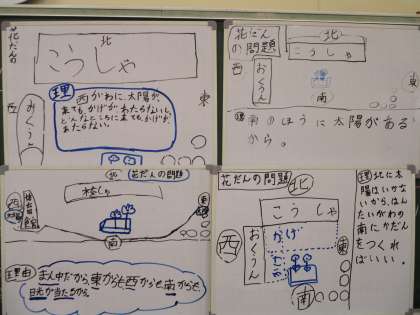 花だんの
北
こうしゃ
西
おくじょう
東
理
西がわに太陽が
来てもかげがあたらないし
あたらない。
花だんの問題
北
こうしゃ
西
東
南
南のほうに太陽がある
から。
北
花だんの問題
校しゃ
西
東
南
理由
まん中だから東からも西からも南からも
日光が当たるから。
花だんの問題
北
こうしゃ
西
かげ
東
南
理 北に太
陽はいかな
いから、はん
たいがわの
南にかだん
をつくれ
ばいい。